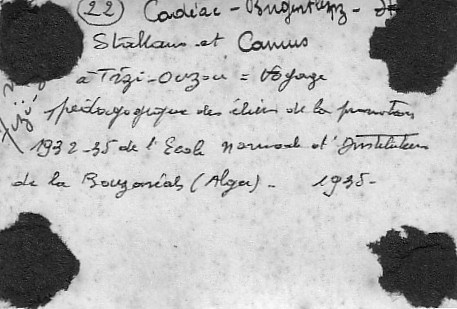 22 Cadéac -
et Camus
à Tizi-Ouzou = Voyage
pédagogique des élèves de la promotion
1932-35 de l'Ecole normale d'Instituteurs
de la Bouzaréah (Alger) - 1935-
Tizi-